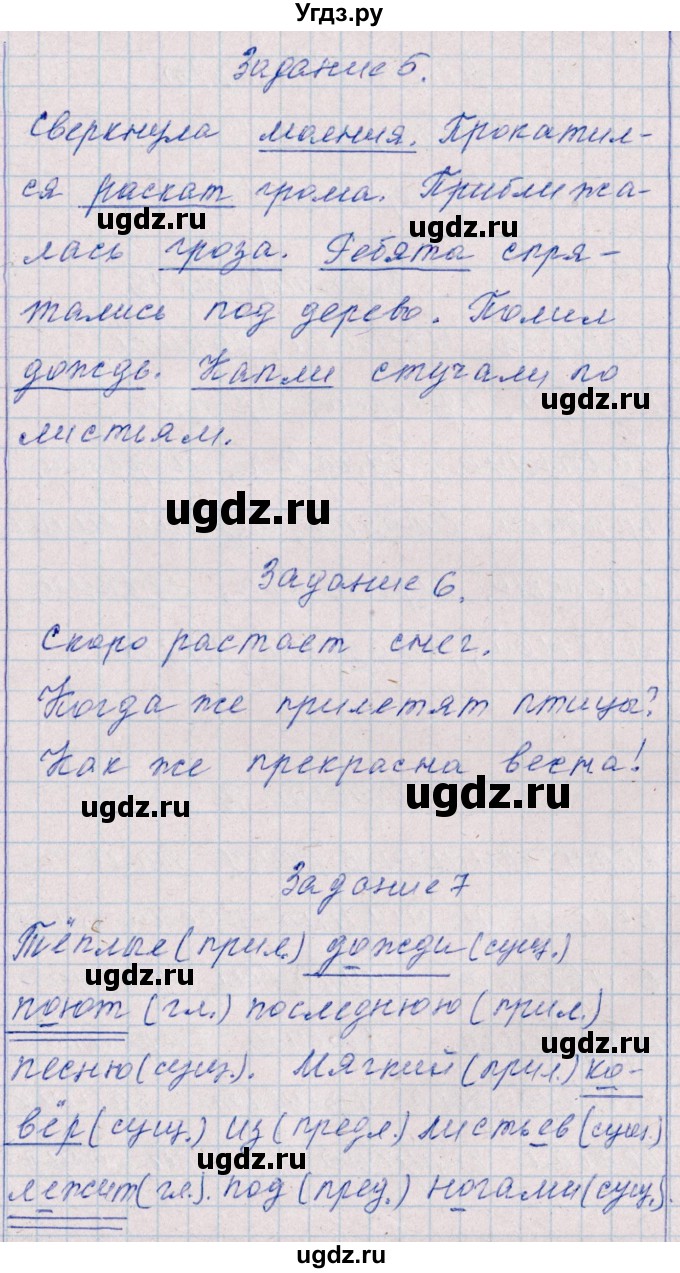 Угдз.ру
Задание 5.
Сверкнула молния. Прокатил-
ся раскат грома. Приближа-
ugdz.ru ugdz.ru
лась гроза. Ребята спря-
тались под дерево. Полил
дождь. Капли стучали по
ugdz.ru
листьям.
ugdz.ru
Задание 6.
Скоро растает снег.
Когда же прилетят птицы?
Как же прекрасна весна!
ugdz.ru ugdz.ru
Задание 7
Тёплые (прил.) дожди (сущ.)
ugdz.ru
поют (гл.) последнюю (прил.)
песню (сущ.). Мягкий (прил.) ко-
вёр (сущ.) из (предл.) листьев (сущ.)
ugdz.ru
лежит (гл.). под (пред.) ногами (сущ.).
ugdz.ru